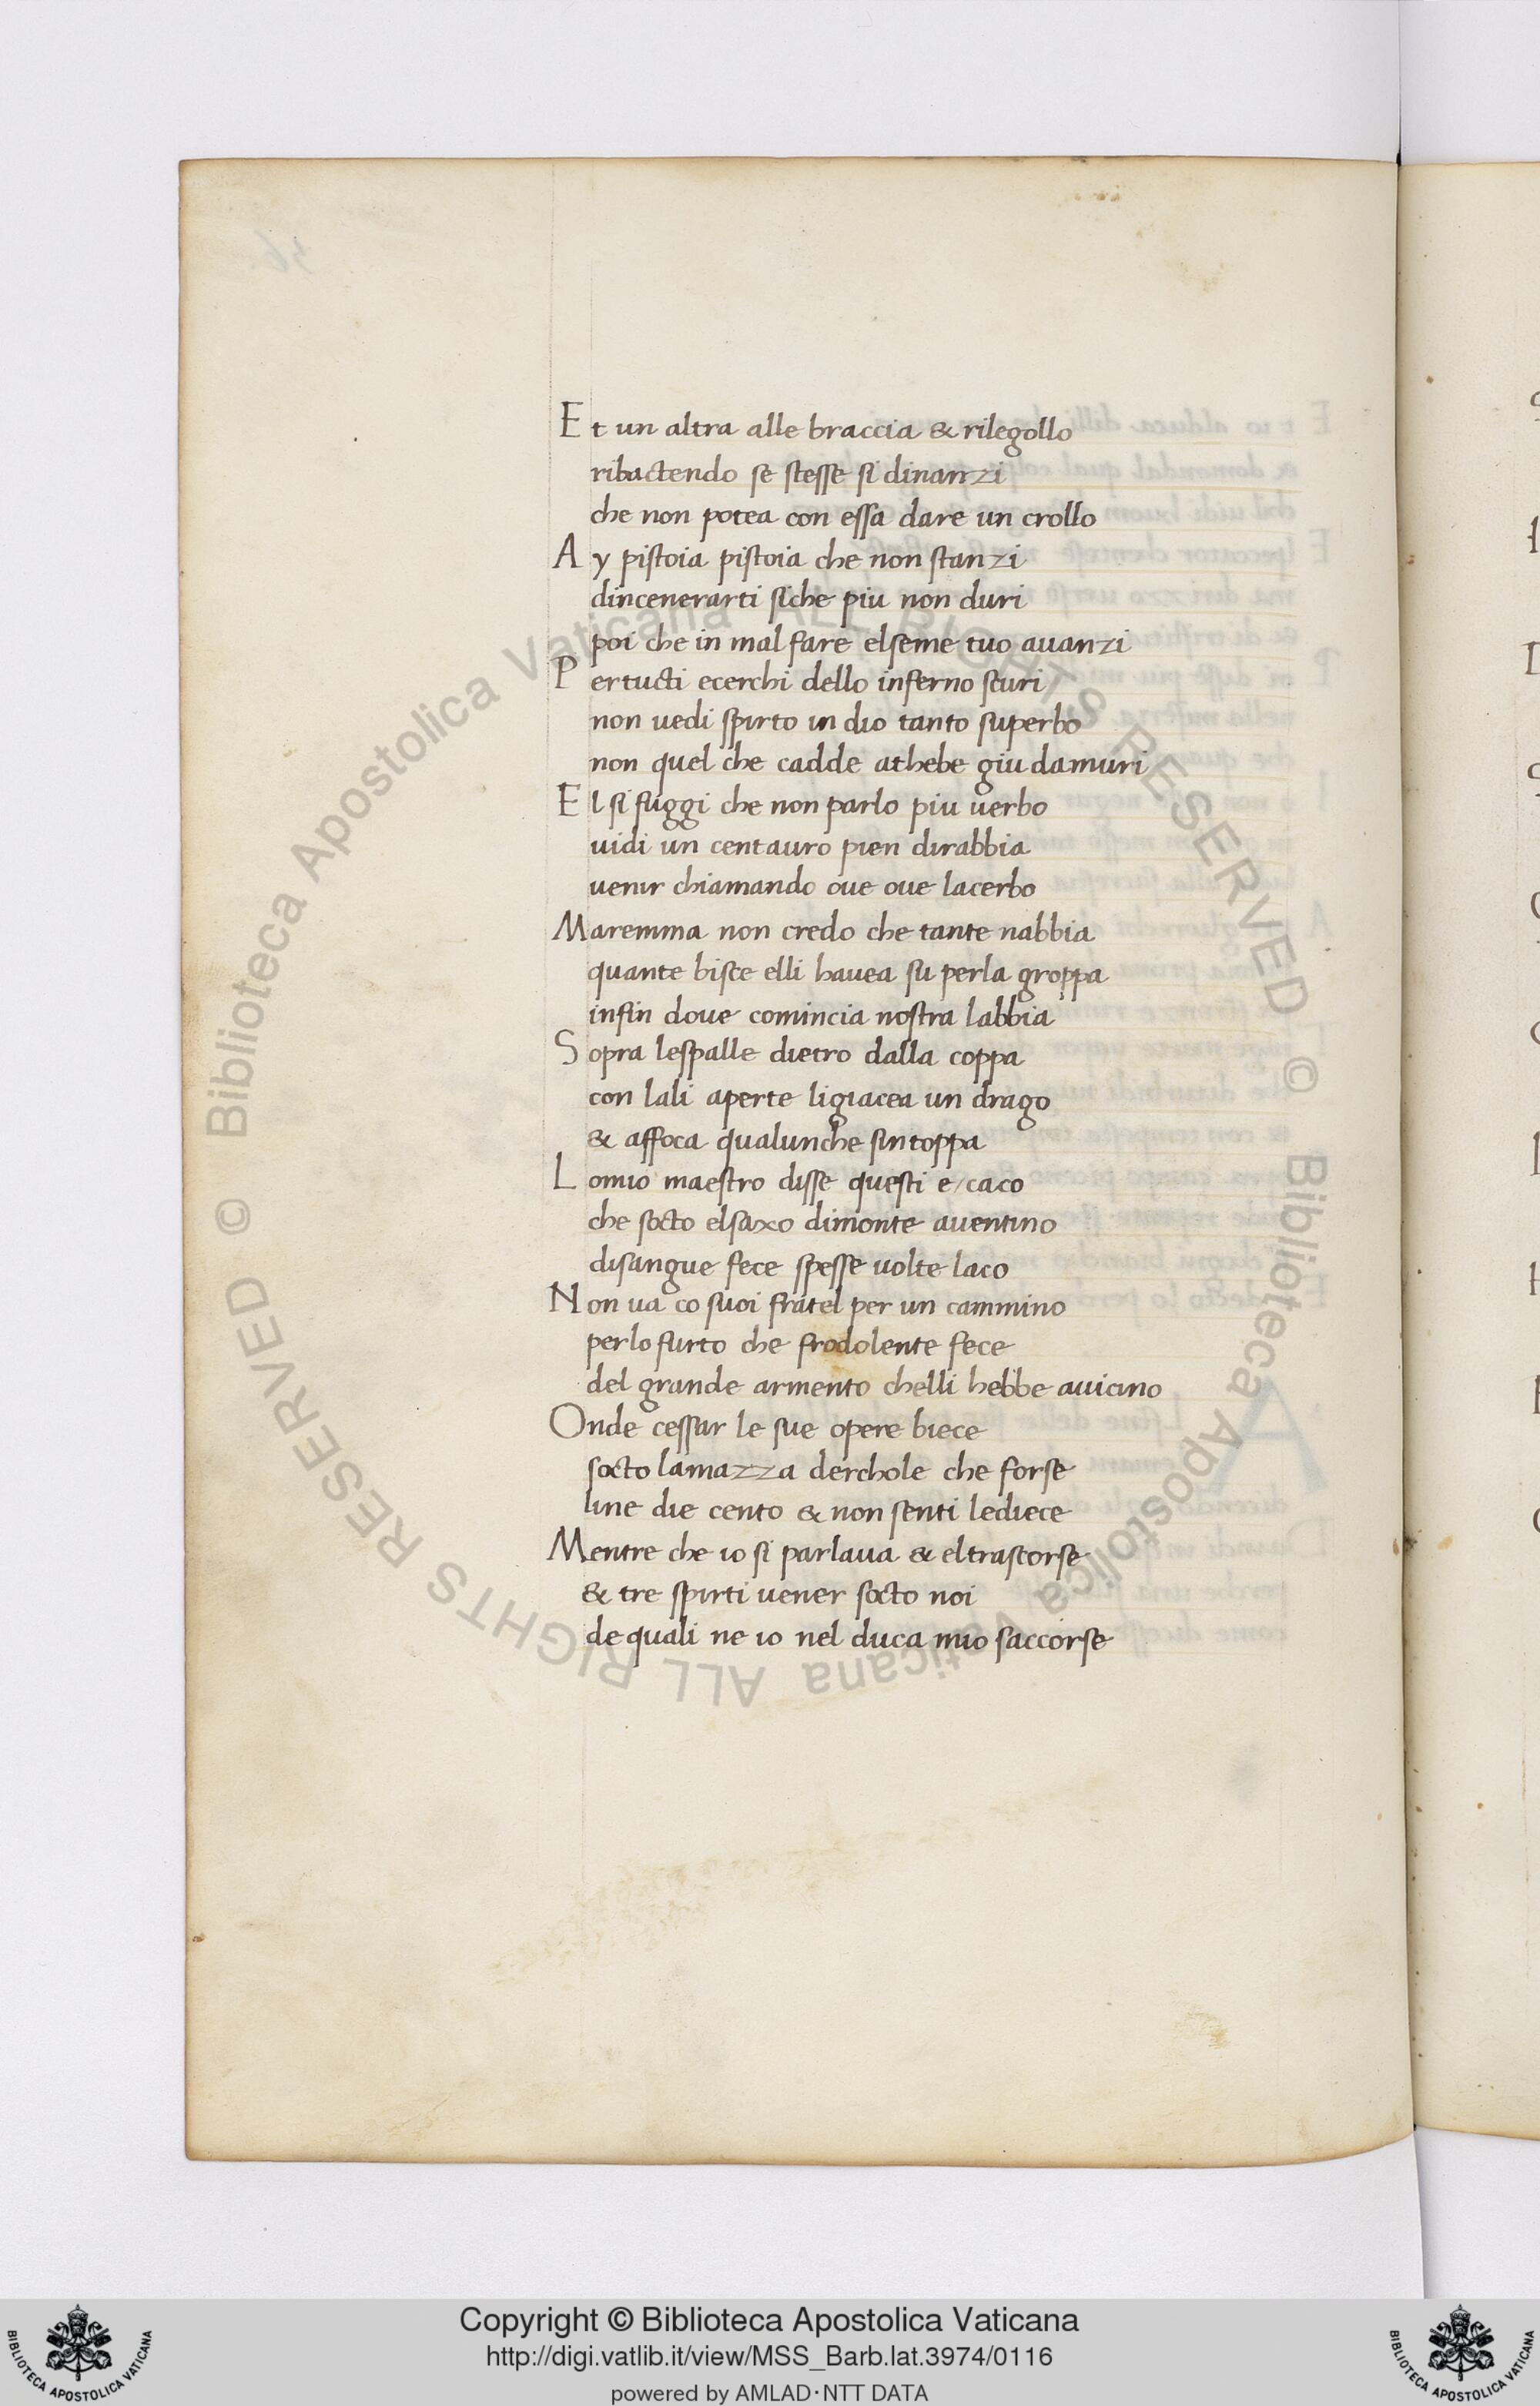 Et un altra alle braccia & rilegollo
ribactendo se stesse si dinanzi
che non potea con essa dare un crollo
Ay pistoia pistoia che non stanzi
dincenerarti siche piu non duri
poi che in mal fare elseme tuo auanzi
Per tucti ecerchi dello inferno scuri
non uedi spirto in dio tanto superbo
non quel che cadde athebe giu damuri
El si fuggi che non parlo piu uerbo
uidi un centauro pien dirabbia
uenir chiamando oue oue lacerbo
Maremma non credo che tante nabbia
quante bisce elli hauea su perla groppa
infin doue comincia nostra labbia
Sopra lespalle dietro dalla coppa
con lali aperte ligiacea un drago
& affoca qualunche sintoppa
Lo mio maestro disse questi e/caco
che socto elsaxo dimonte auentino
disangue fece spesse uolte laco
Non ua co suoi fratel per un cammino
perlo furto che frodolente fece
del grande armento chelli hebbe auicino
Onde cessar le sue opere biece
socto lamazza derchole che forse
line die cento & non senti lediece
Mentre che io si parlaua & eltrascorse
& tre spirti uener socto noi
de quali ne io nel duca mio saccorse
© Biblioteca Apostolica Vaticana ALL RIGHTS RESERVED © Biblioteca Apostolica Vaticana ALL RIGHTS RESERVED
BIBLIOTECA APOSTOLICA VATICANA
Copyright © Biblioteca Apostolica Vaticana
http://digi.vatlib.it/view/MSS_Barb.lat.3974/0116
powered by AMLAD·NTT DATA
BIBLIOTECA APOSTOLICA VATICANA